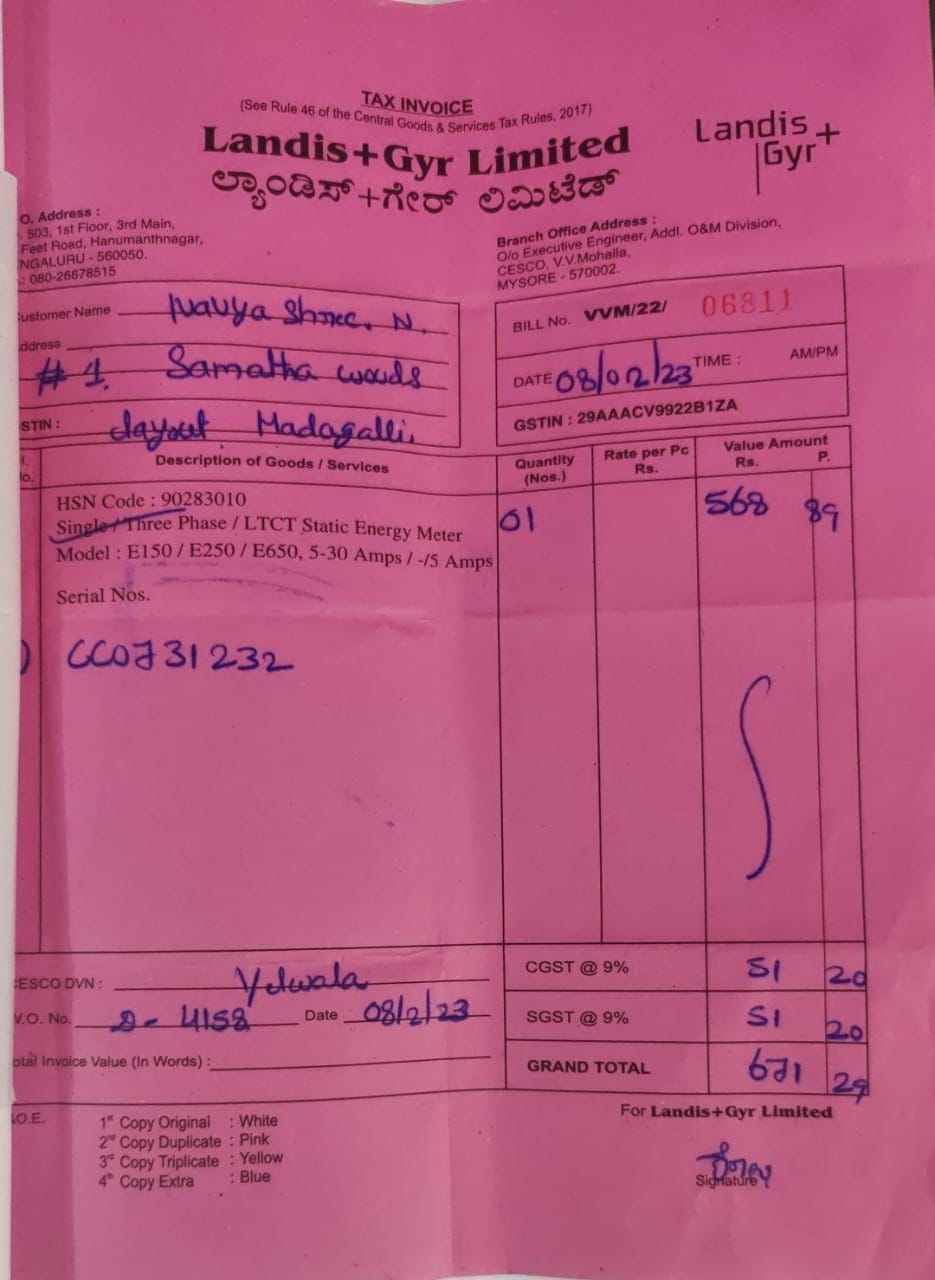 TAX INVOICE
(See Rule 46 of the Central Goods & Services Tax Rules, 2017)
Landis+Gyr Limited
ಲ್ಯಾಂಡಿಸ್+ಗೇರ್ ಲಿಮಿಟೆಡ್
Landis
Gyr+
O. Address :
503, 1st Floor, 3rd Main,
Feet Road, Hanumanthnagar,
NGALURU - 560050.
.: 080-26678515
Branch Office Address :
O/o Executive Engineer, Addl. O&M Division,
CESCO, V.V.Mohalla,
MYSORE - 570002.
ustomer Name Navya Shree. N.
ddress
# 1. Samatha woods
STIN : layout Madagalli
BILL No. VVM/22/ 06811
DATE 08/02/23 TIME : AM/PM
GSTIN : 29AAACV9922B1ZA
l. o. Description of Goods / Services Quantity (Nos.) Rate per Pc Rs. Value Amount Rs. P.
HSN Code : 90283010
Single / Three Phase / LTCT Static Energy Meter 01 568 89
Model : E150 / E250 / E650, 5-30 Amps / -/5 Amps
Serial Nos.
) CC0731232
CESCO DVN : Yelwala
V.O. No. D- 4158 Date 08/2/23
otal Invoice Value (In Words) :
CGST @ 9% 51 20
SGST @ 9% 51 20
GRAND TOTAL 671 29
.O.E.
1st Copy Original : White
2nd Copy Duplicate : Pink
3rd Copy Triplicate : Yellow
4th Copy Extra : Blue
For Landis+Gyr Limited
Signature